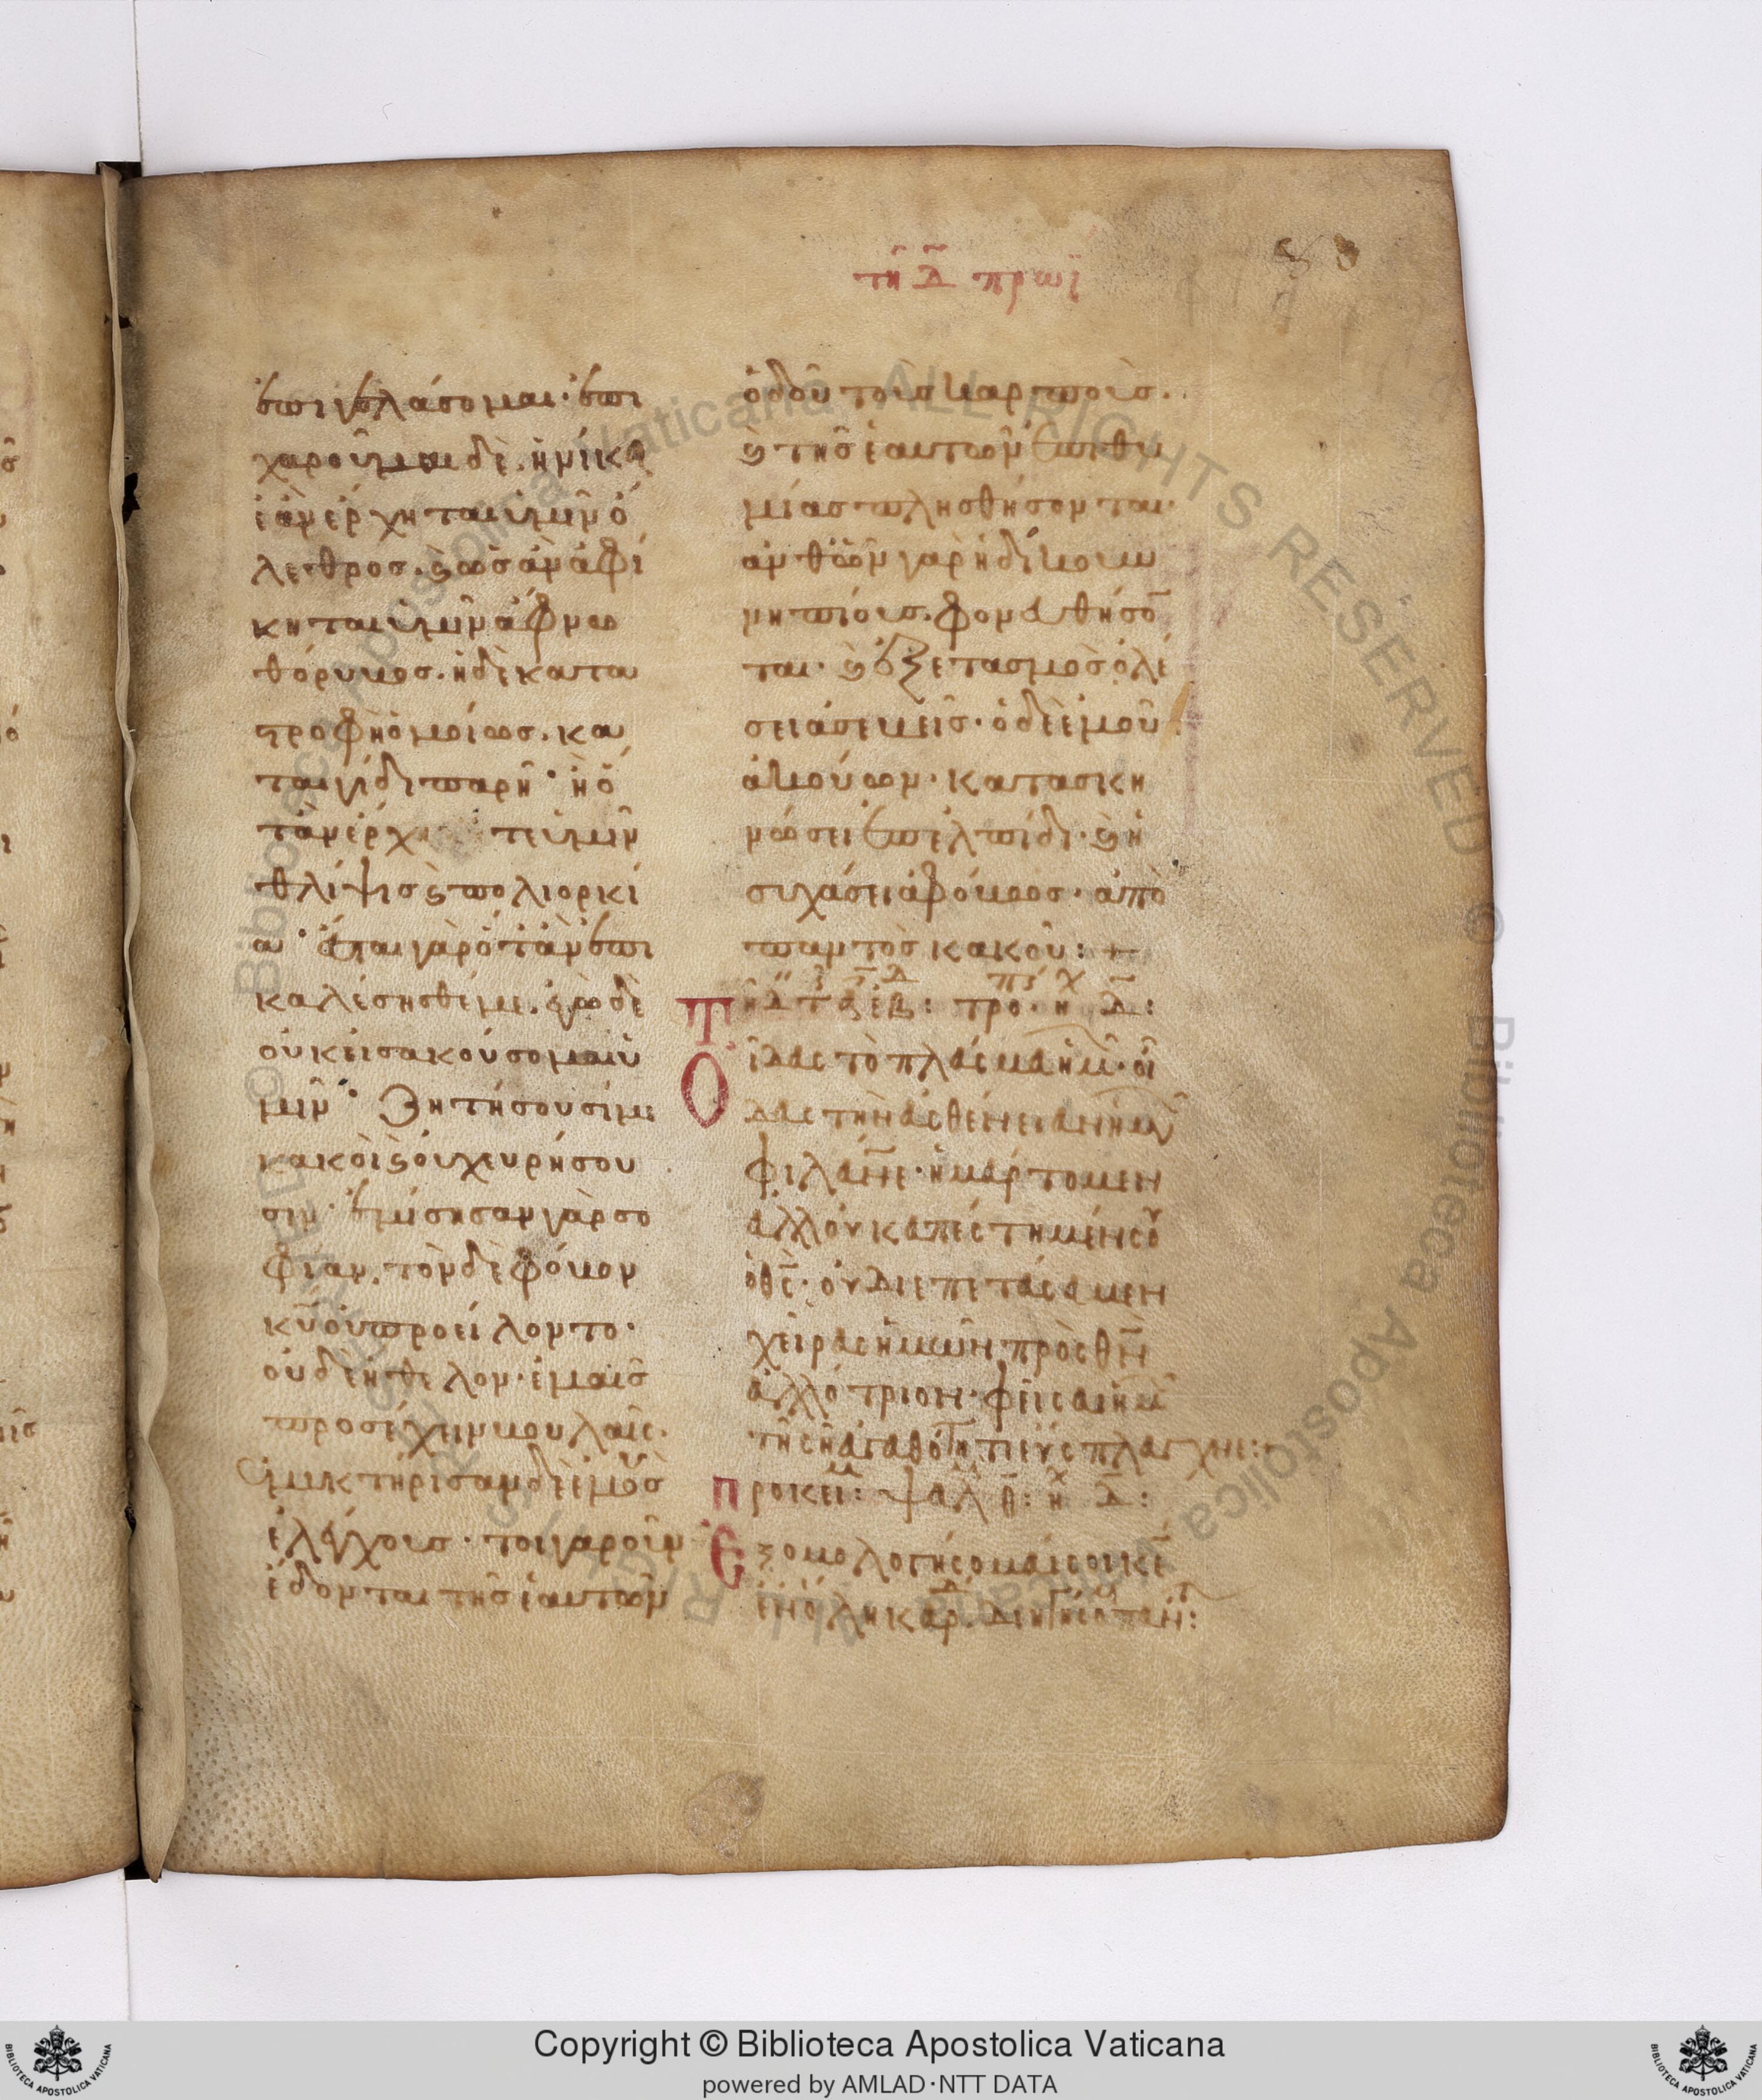 τῆ δ̄ πρωῒ
ἐπιγελάσομαι· ἐπι
χαροῦμαι δὲ, ἡνίκα
ἐὰν ἔρχηται ὑμῖν ὄ
λεθρος. ϗ ὡς ἂν ἀφί
κηται ὑμῖν ἄφνω
θόρυβος. ἡ δὲ κατα
στροφὴ ὁμοίως. κα
ταιγίδι παρῆ· ἢ ὅ
τὰν ἔρχη τε ὑμῖν
θλίψις ϗ πολιορκί
α· ἔσται γὰρ ὅτὰν ἐπι
καλέσησθέ με. ἐγὼ δὲ
οὐκ εἰσακούσομαι ὑ
μῖν· Ζητήσουσί με
κακοὶ ϗ οὐχ ευρήσου
σιν· ἐμίσησαν γὰρ σο
φίαν. τὸν δὲ φόβον
κῡ οὐ προείλοντο·
οὐδὲ ἤθελον· ἐμαῖς
προσέχειν βουλαῖς·
ἐμυκτήρισαν δὲ ἐμοὺς
ἐλέγχους· τοιγαροῦν
ἔδονται τῆς ἑαυτῶν
ὁδοῦ τοὺς καρποὺς.
ϗ τῆς ἑαυτῶν ἐπιθυ
μίας πλησθήσονται·
ἀνθ' ὧν γὰρ ἠδίκουν
νηπίους. φονευθήσο̄
ται· ϗ ἐξετασμὸς ὀλέ
σει ἀσεβεῖς· ὁ δὲ ἐμοῦ
ἀκούων· κατασκη
νώσει ἐπ' ἐλπίδι· ϗ ἡ
συχάσει ἀφόβως· ἀπὸ
παντὸς κακοῦ: +
Τῆ δ̄ τ ς ἑβ: τρο· ἠ δ̄:
Οἶδας τὸ πλάσμα ἡμ· οἶ
δας τὴν ἀσθένειαν ἡμῶν
φιλάν̄ε· ἡμάρτομεν
ἀλλ' οὐκ ἀπέστημέν σου
ὁ θς̄· οὐ διεπετάσαμεν
χεῖρας ἡμῶν πρὸς θν̄
ἀλλότριον· φεῖσαι ἡμ
τῆ σῆ ἀγαθότητι εὔσπλαγχνε:
Προκεί: ψαλ θ: ἠχ δ̄:
Ἐξομολογήσομαί σοι κε̄
ἐν ὅλη καρδ. διηγήσομ παν:
Copyright © Biblioteca Apostolica Vaticana
powered by AMLAD·NTT DATA